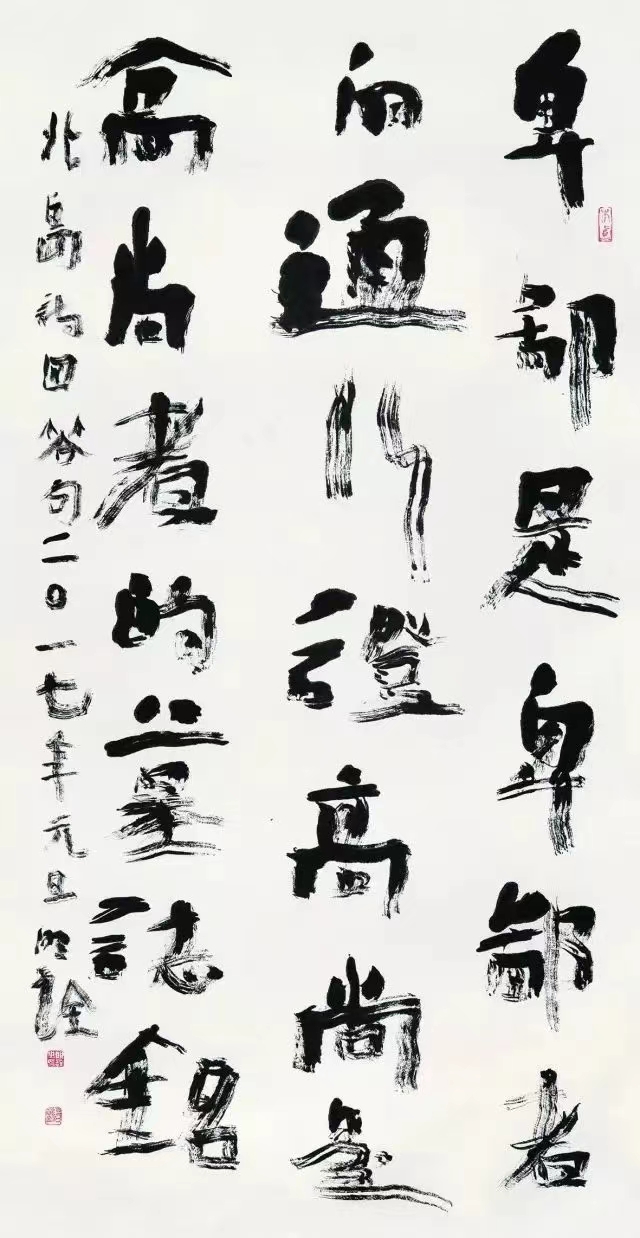 卑鄙是卑鄙者
的通行證高尚是
高尚者的墓誌銘
北島詩回答句二〇一七年元旦明詮